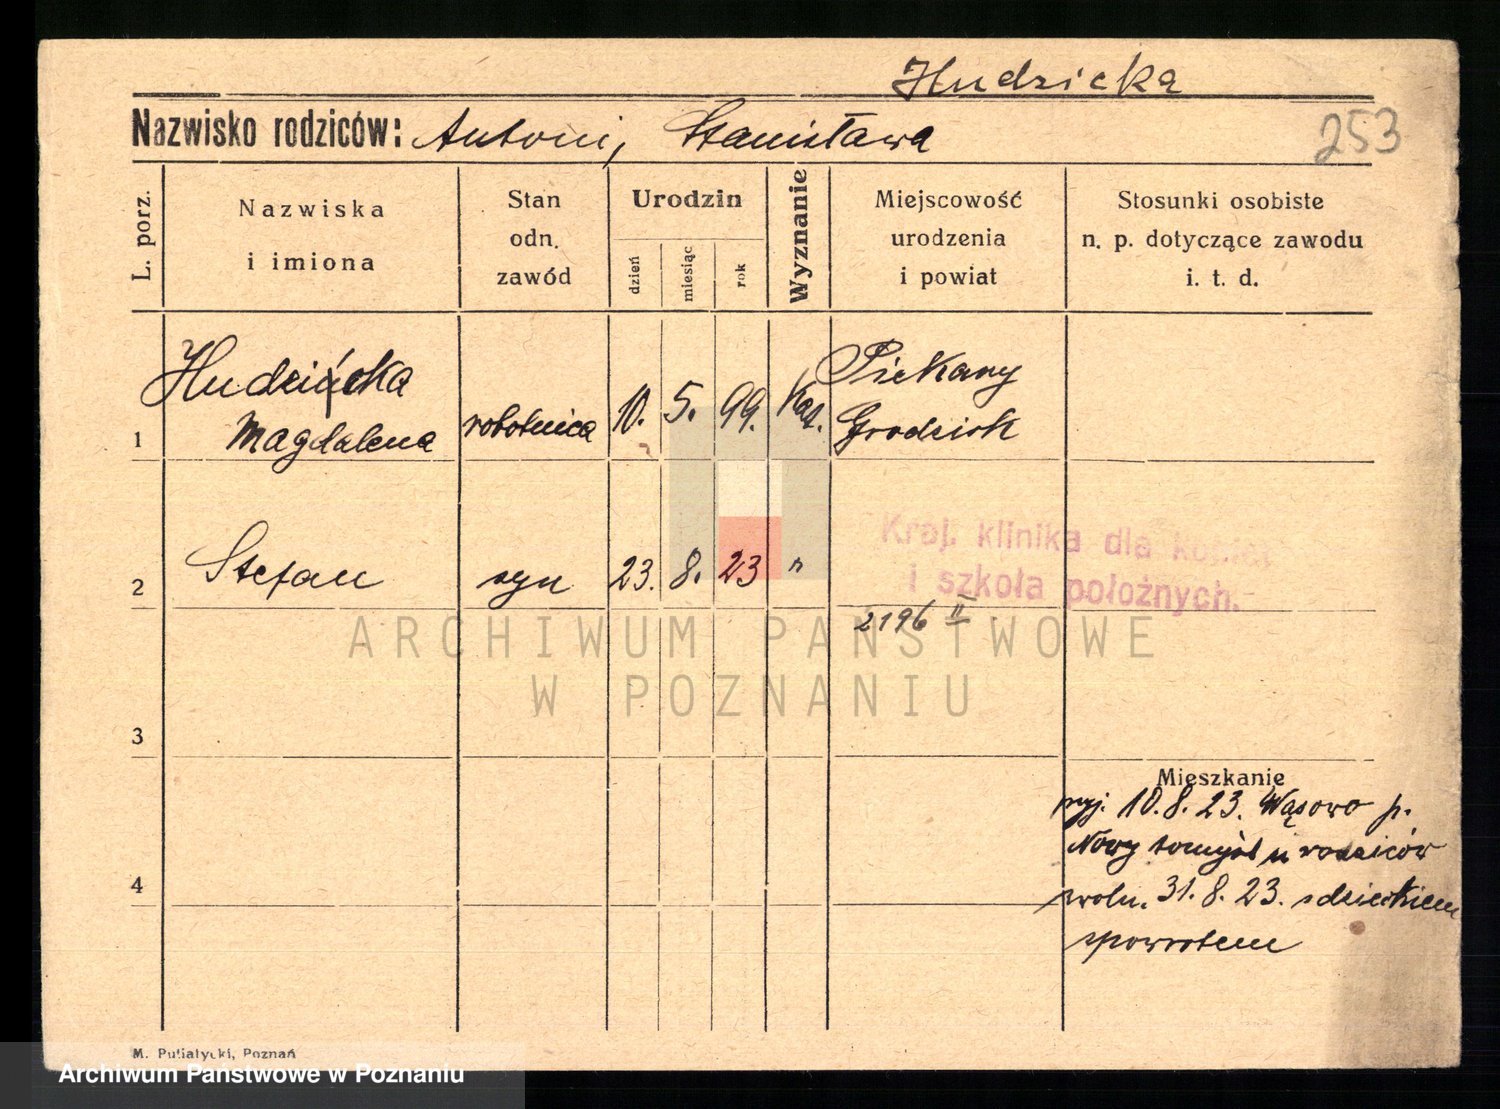 Hudzicka
Nazwisko rodziców: Antoni, Stanisława
253
L. porz.
Nazwiska
i imiona
Stan
odn.
zawód
Urodzin
dzień
miesiąc
rok
Wyznanie
Miejscowość
urodzenia
i powiat
Stosunki osobiste
n. p. dotyczące zawodu
i. t. d.
1
Hudzicka
Magdalena
robotnica
10. 5. 99. Kat.
Piekary
Grodzisk
2
Stefan
syn
23. 8. 23 "
Kraj. klinika dla kobiet
i szkoła położnych.
2196 II
ARCHIWUM PAŃSTWOWE
W POZNANIU
3
4
Mieszkanie
przyj. 10.8.23. Wąsowo p.
Nowy tomyśl u rodziców
zwoln. 31.8.23. z dzieckiem
spowrotem
M. Putiatycki, Poznań
Archiwum Państwowe w Poznaniu